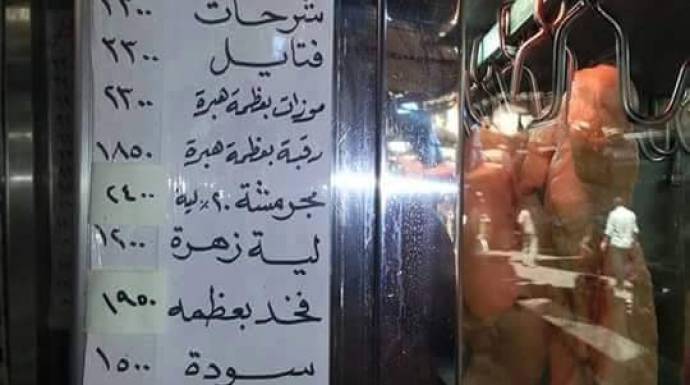 شرحات ٢٣٠٠
فتايل ٢٣٠٠
موزات بعظمة هبرة ٢٣٠٠
رقبة بعظمة هبرة ١٨٥٠
مجرمشة ٢٠٪ لية ٢٤٠٠
لية زهرة ١٢٠٠
فخد بعظمه ١٩٥٠
سودة ١٥٠٠